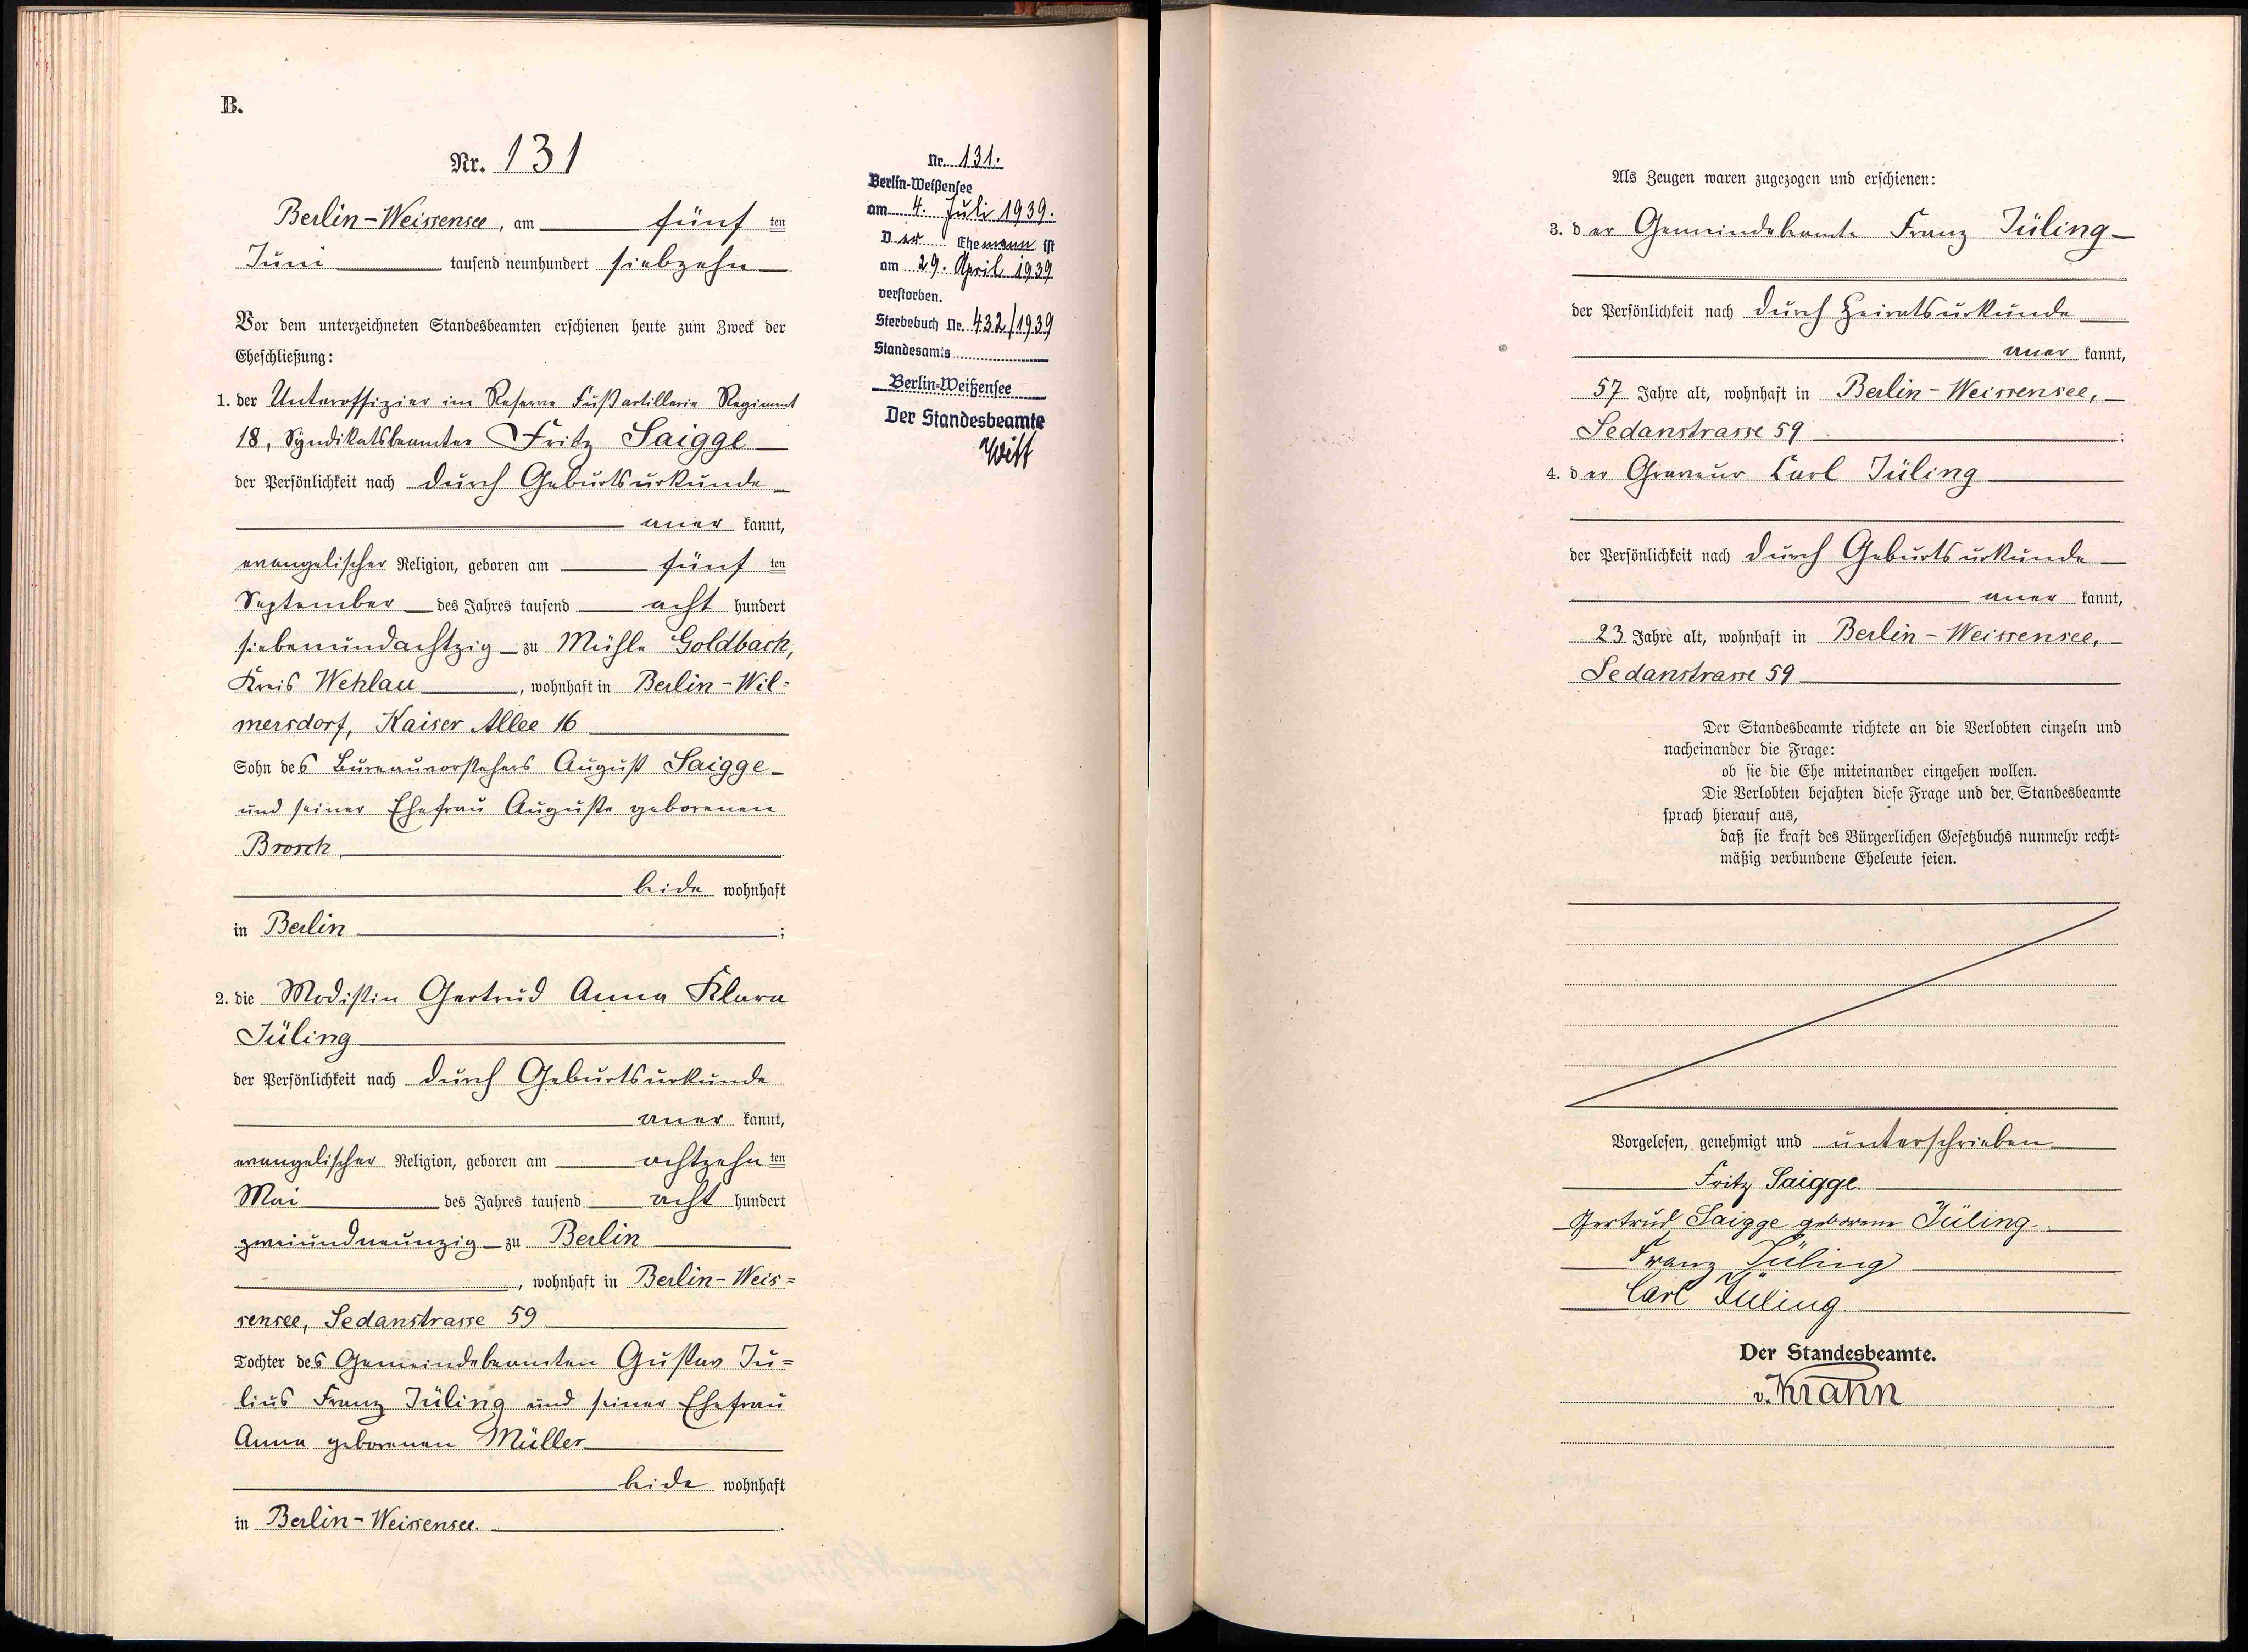 B.
Nr. 131
Berlin-Weissensee, am fünf ten
Juni tausend neunhundert siebzehn
Vor dem unterzeichneten Standesbeamten erschienen heute zum Zweck der
Eheschließung:
1. der Unteroffizier im Reserve Fußartillerie Regiment
18, Syndikatsbeamter Fritz Saigge
der Persönlichkeit nach durch Geburtsurkunde
aner kannt,
evangelischer Religion, geboren am fünf ten
September des Jahres tausend acht hundert
siebenundachtzig zu Mühle Goldbach,
Kreis Wehlau, wohnhaft in Berlin-Wil-
mersdorf, Kaiser Allee 16
Sohn des Bureauvorstehers August Saigge
und seiner Ehefrau Auguste geborenen
Brosch
beide wohnhaft
in Berlin;
2. die Modistin Gertrud Anna Klara
Jüling
der Persönlichkeit nach durch Geburtsurkunde
aner kannt,
evangelischer Religion, geboren am achtzehn ten
Mai des Jahres tausend acht hundert
zweiundneunzig zu Berlin
, wohnhaft in Berlin-Weis=
sensee, Sedanstrasse 59
Tochter des Gemeindebeamten Gustav Ju=
lius Franz Jüling und seiner Ehefrau
Anna geborenen Müller
beide wohnhaft
in Berlin-Weissensee.
Nr. 131.
Berlin-Weißensee
am 4. Juli 1939.
Der Ehemann ist
am 29. April 1939
verstorben.
Sterbebuch Nr. 432/1939
Standesamts
Berlin-Weißensee
Der Standesbeamte
Witt
Als Zeugen waren zugezogen und erschienen:
3. der Gemeindebeamte Franz Jüling
der Persönlichkeit nach durch Heiratsurkunde
aner kannt,
57 Jahre alt, wohnhaft in Berlin-Weissensee,
Sedanstrasse 59;
4. der Graveur Carl Jüling
der Persönlichkeit nach durch Geburtsurkunde
aner kannt,
23 Jahre alt, wohnhaft in Berlin-Weissensee,
Sedanstrasse 59
Der Standesbeamte richtete an die Verlobten einzeln und
nacheinander die Frage:
ob sie die Ehe miteinander eingehen wollen.
Die Verlobten bejahten diese Frage und der Standesbeamte
sprach hierauf aus,
daß sie kraft des Bürgerlichen Gesetzbuchs nunmehr recht-
mäßig verbundene Eheleute seien.
Vorgelesen, genehmigt und unterschrieben
Fritz Saigge.
Gertrud Saigge geborene Jüling.
Franz Jüling
Carl Jüling
Der Standesbeamte.
v. Krahn